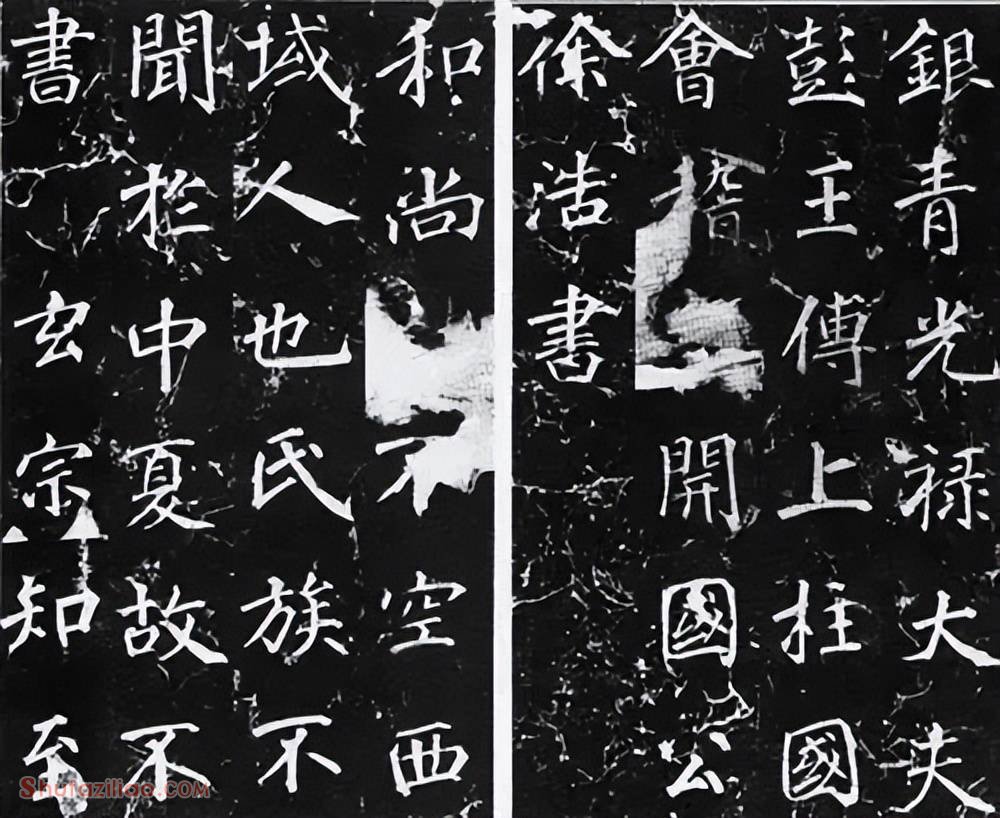 銀青光禄大夫
彭王傅上柱國
會稽開國公
徐浩書
和尚不空西
域人也氏族不
聞扵中夏故不
書玄宗知至
Shufaziliao.COM